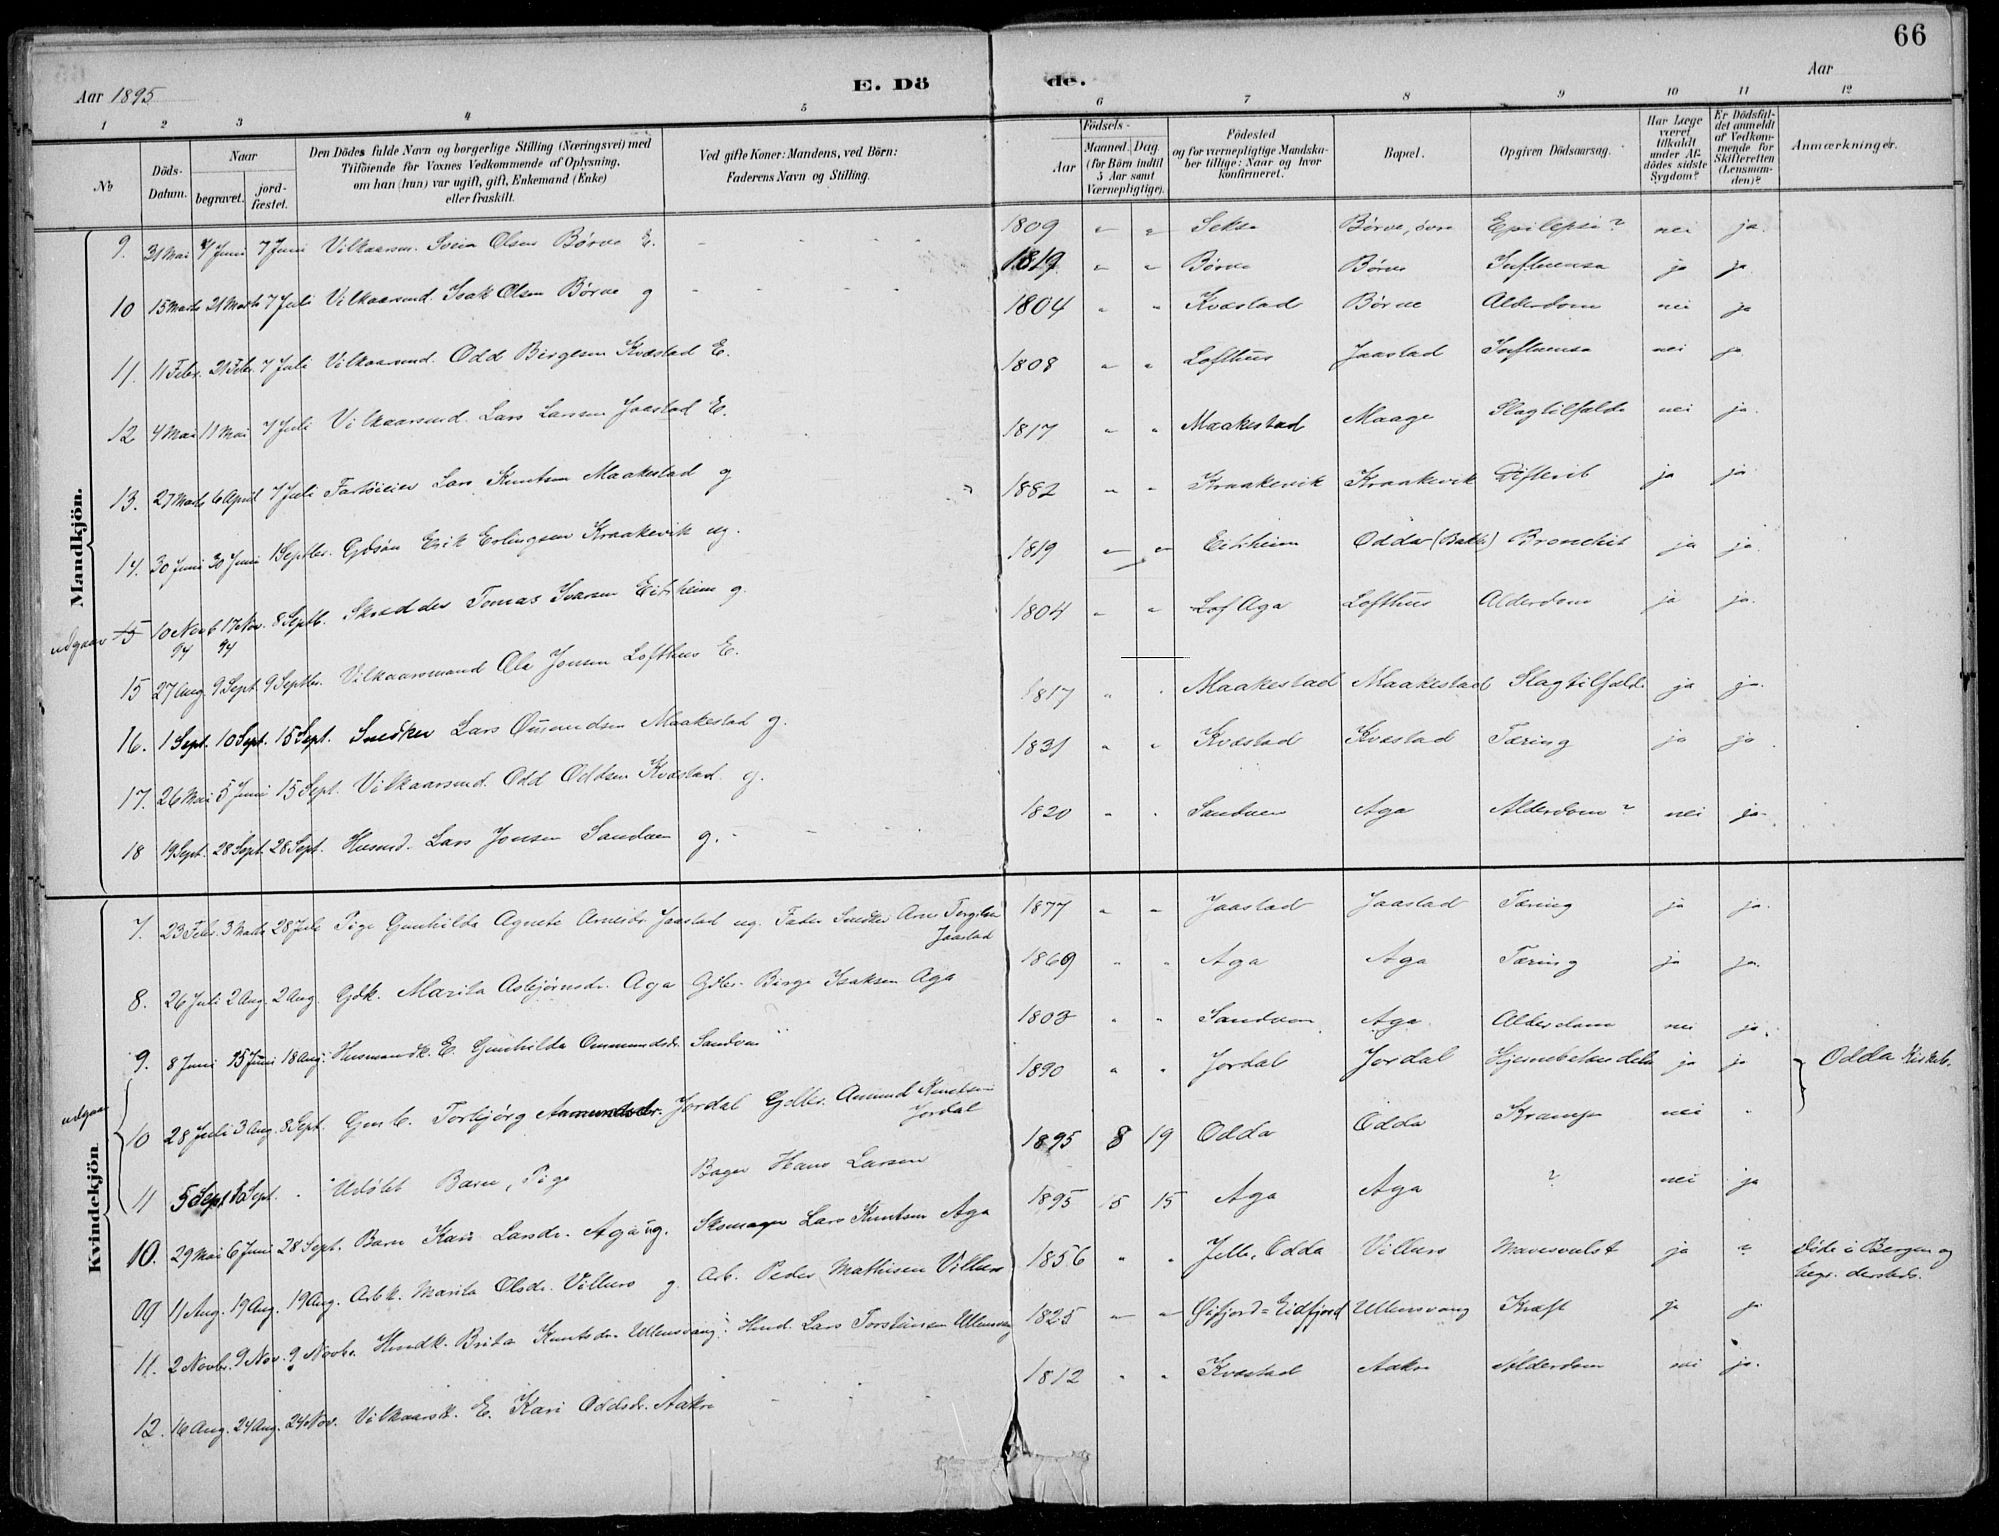 66
Aar 1895
E. Dö de.
Aar
1 2 3 4 5 6 7 8 9 10 11 12
No
Döds-Datum.
Naar
begravet.
jord-fæstet.
Den Dödes fulde Navn og borgerlige Stilling (Næringsvei) med
Tilföiende for Voxnes Vedkommende af Oplysning,
om han (hun) var ugift, gift, Enkemand (Enke)
eller fraskilt.
Ved gifte Koner: Mandens, ved Börn:
Faderens Navn og Stilling.
Födsels-
Aar
Maaned. Dag.
(for Börn indtil
5 Aar samt
Værnepligtige).
Födested
og for værnepligtige Mandska-
ber tillige: Naar og hvor
konfirmeret.
Bopæl.
Opgiven Dödsaarsag.
Har Læge
været
tilkaldt
under Af-
dödes sidste
Sygdom?
Er Dödsfal-
det anmeldt
af Vedkom-
mende for
Skifteretten
(Lensman-
den)?
Anmærkninger.
Mandkjön.
9. 31 Mai 7 Juni 7 Juni Vilkaarsm. Svein Olsen Børve E. - - - - 1809 " " Sekse Børve, øvre Epilepsi? nei ja.
10 15 Marts 21 Marts 7 Juli Vilkaarsmd. Isak Olsen Børve g - - - - 1819 " " Børve Børve Influensa ja ja
11. 11 Febr. 21 Febr. 7 Juli Vilkaarsmd. Odd Birgesen Kvæstad E. 1804 " " Kvæstad Børve Alderdom nei ja
12 4 Mai 11 Mai 7 Juli Vilkaarsmd. Lars Larsen Jaastad E. 1808 " " Lofthus Jaastad Influensa nei ja
13. 27 Marts 6 April 7 Juli Fartøieier Lars Knutsen Maakestad g 1817 " " Maakestad Maage Slagtilfælde nei ja.
14. 30 Juni 30 Juni 1 Septbr. Gdsøn Erik Erlingsen Kraakevik ug. 1882 " " Kraakevik Kraakevik Difterit ja ja
udgaar 15 10 Novb 94 17 Nov. 94 8 Septb. Skrædder Tomas Ivarsen Eitrheim g. 1819 " " Eitrheim Odda (Bakke) Bronchit ja ja.
15 27 Aug. 9 Sept. 9 Septbr. Vilkaarsmand Ole Jonsen Lofthus E. 1804 " " Lof Aga Lofthus Alderdom ja ja.
16. 1 Sept. 10 Sept. 15 Sept. Snedker Lars Omundsen Maakestad g. 1817 " " Maakestad Maakestad Slagtilfæld. ja ja.
17. 26 Mai 5 Juni 15 Sept. Vilkaarsmd. Odd Oddsen Kvæstad g. 1831 " " Kvæstad Kvæstad Tæring ja ja.
18 19 Sept. 28 Sept. 28 Sept. Husmd. Lars Jonsen Sandven g. - - - 1820 " " Sandven Aga Alderdom? nei ja.
Kvindekjön
7. 23 Febr. 3 Marts 28 Juli Pige Gunhilda Agnete Arnesdr. Jaastad ug. Fader Snedker Arne Torgilsen Jaastad 1877 " " Jaastad Jaastad Tæring ja ja.
8. 26 Juli 2 Aug. 2 Aug. Gdk. Marita Asbjørnsdr. Aga Gdbr. Birge Isaksen Aga 1869 " " Aga Aga Tæring ja ja.
9. 8 Juni 15 Juni 18 Aug. Husmandk. E. Gunhilda Ommundsdr. Sandven " 1803 " " Sandven Aga Alderdom nei ja.
udgaar 10 28 Juli 3 Aug. 8 Sept. Gmb. Torbjørg Aamundsdr. Jordal Gdbr. Amund Knutsen Jordal 1890 " " Jordal Jordal Hjernebetændelse ja ja } Odda Kirkeb.
11 5 Sept. Sept. . Udøbt Barn, Pige Bager Hans Larsen 1895 8 19 Odda Odda Krampe nei "
10. 29 Mai 6 Juni 28 Sept. Barn Kari Larsdr. Aga ug. Skomager Lars Knutsen Aga 1895 5 15 Aga Aga ? nei ja
11 Aug. 19 Aug. 19 Aug. Arbk. Marita Olsdr. Villuro g Arb. Peder Mathisen Villuro 1856 " " Jelle, Odda Villuro Mavesvulst ja ? Døde i Bergen og begr. dersteds.
11. 2 Novbr. 9 Nov. 9 Novbr. Hmdk. Brita Knutsdr. Ullensvang Hmd. Lars Torsteinsen Ullensvang 1825 " " Øifjord = Eidfjord Ullensvang Kræft ja ja
12. 16 Aug. 24 Aug. 24 Nov. Vilkaarsk. E. Kari Oddsdr. Aakre - - - 1812 " " Kvæstad Aakre Alderdom nei ja.